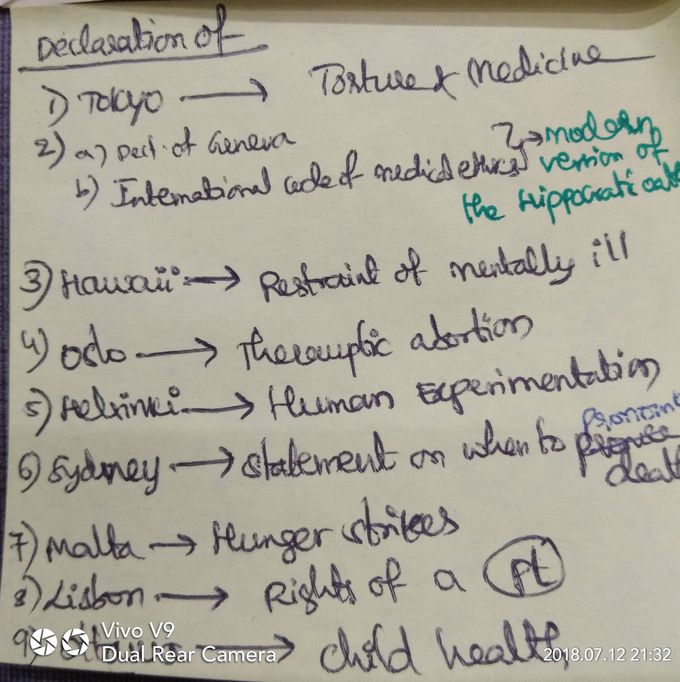 Declaration of
1) Tokyo → Torture & Medicine
2) a) Decl. of Geneva
b) International code of medical ethics } → modern version of the Hippocratic oath
3) Hawaii → Restraint of mentally ill
4) Oslo → Therauptic abortion
5) Helsinki → Human Experimentation
6) Sydney → Statement on when to pronounce death
7) Malta → Hunger strikes
8) Lisbon → Rights of a pt
9) Ottawa → child health
Vivo V9
Dual Rear Camera
2018.07.12 21:32